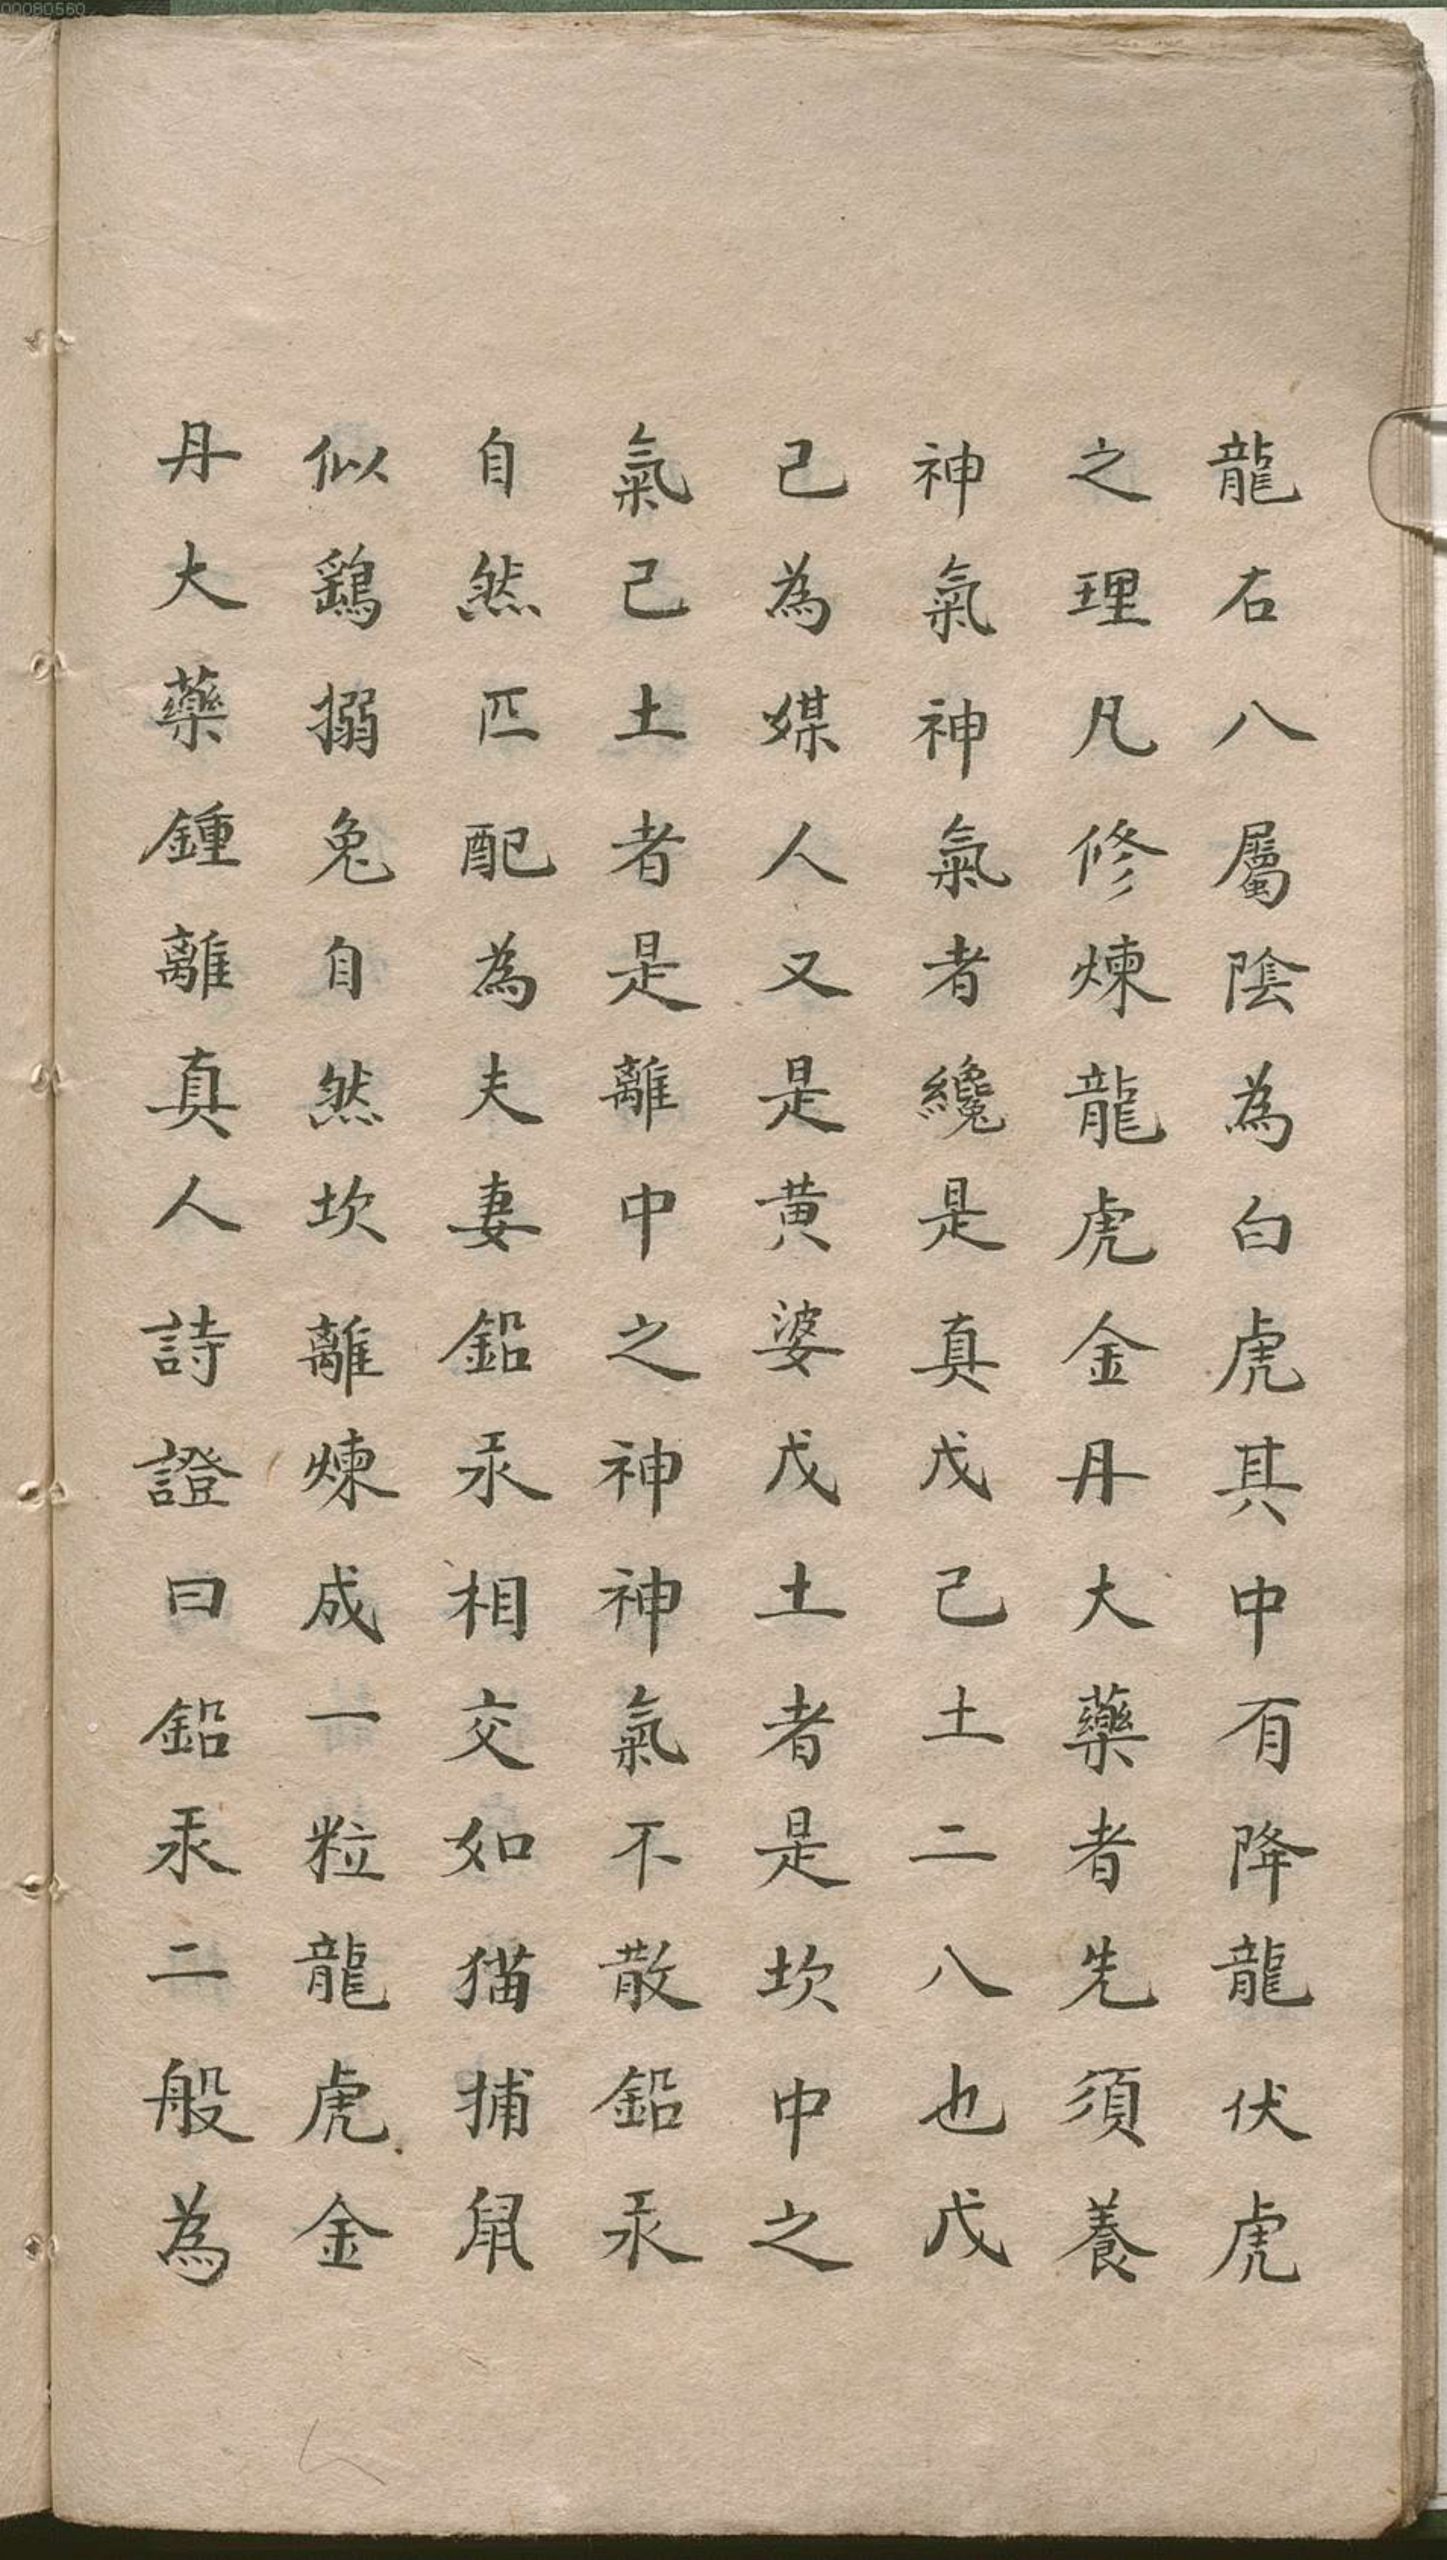 00080560
龍右八屬陰為白虎其中有降龍伏虎
之理凡修煉龍虎金丹大藥者先須養
神氣神氣者纔是真戊己土二八也戊
己為媒人又是黃婆戊土者是坎中之
氣己土者是離中之神神氣不散鉛汞
自然匹配為夫妻鉛汞相交如猫捕鼠
似鷂搦兔自然坎離煉成一粒龍虎金
丹大藥鍾離真人詩證曰鉛汞二般為